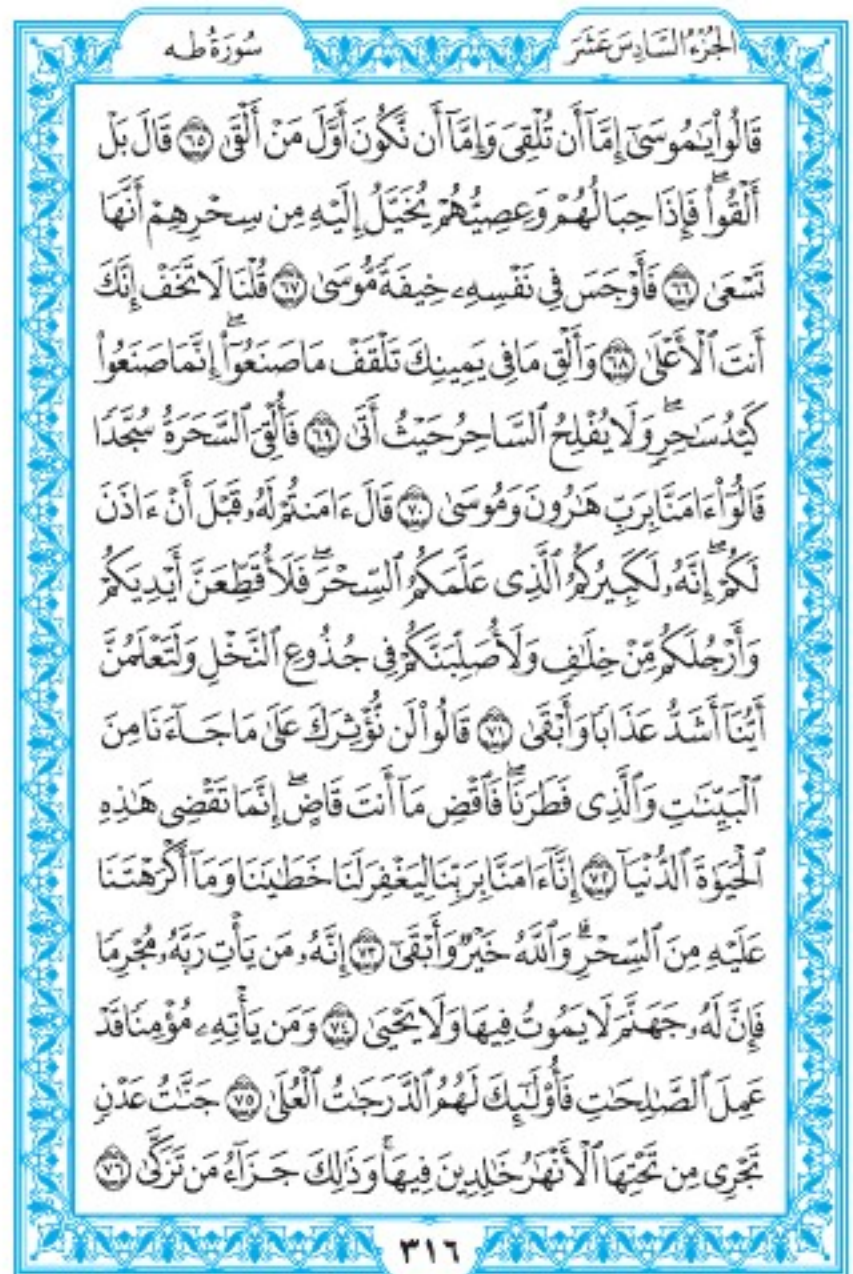 الجُزْءُ السَّادِسَ عَشَرَ
سُورَةُ طه
قَالُواْ يَٰمُوسَىٰٓ إِمَّآ أَن تُلۡقِيَ وَإِمَّآ أَن نَّكُونَ أَوَّلَ مَنۡ أَلۡقَىٰ ٦٥ قَالَ بَلۡ
أَلۡقُواْۖ فَإِذَا حِبَالُهُمۡ وَعِصِيُّهُمۡ يُخَيَّلُ إِلَيۡهِ مِن سِحۡرِهِمۡ أَنَّهَا
تَسۡعَىٰ ٦٦ فَأَوۡجَسَ فِي نَفۡسِهِۦ خِيفَةٗ مُّوسَىٰ ٦٧ قُلۡنَا لَا تَخَفۡ إِنَّكَ
أَنتَ ٱلۡأَعۡلَىٰ ٦٨ وَأَلۡقِ مَا فِي يَمِينِكَ تَلۡقَفۡ مَا صَنَعُوٓاْۖ إِنَّمَا صَنَعُواْ
كَيۡدُ سَٰحِرٖۖ وَلَا يُفۡلِحُ ٱلسَّاحِرُ حَيۡثُ أَتَىٰ ٦٩ فَأُلۡقِيَ ٱلسَّحَرَةُ سُجَّدٗا
قَالُوٓاْ ءَامَنَّا بِرَبِّ هَٰرُونَ وَمُوسَىٰ ٧٠ قَالَ ءَامَنتُمۡ لَهُۥ قَبۡلَ أَنۡ ءَاذَنَ
لَكُمۡۖ إِنَّهُۥ لَكَبِيرُكُمُ ٱلَّذِي عَلَّمَكُمُ ٱلسِّحۡرَۖ فَلَأُقَطِّعَنَّ أَيۡدِيَكُمۡ
وَأَرۡجُلَكُم مِّنۡ خِلَٰفٖ وَلَأُصَلِّبَنَّكُمۡ فِي جُذُوعِ ٱلنَّخۡلِ وَلَتَعۡلَمُنَّ
أَيُّنَآ أَشَدُّ عَذَابٗا وَأَبۡقَىٰ ٧١ قَالُواْ لَن نُّؤۡثِرَكَ عَلَىٰ مَا جَآءَنَا مِنَ
ٱلۡبَيِّنَٰتِ وَٱلَّذِي فَطَرَنَاۖ فَٱقۡضِ مَآ أَنتَ قَاضٍۖ إِنَّمَا تَقۡضِي هَٰذِهِ
ٱلۡحَيَوٰةَ ٱلدُّنۡيَآ ٧٢ إِنَّآ ءَامَنَّا بِرَبِّنَا لِيَغۡفِرَ لَنَا خَطَٰيَٰنَا وَمَآ أَكۡرَهۡتَنَا
عَلَيۡهِ مِنَ ٱلسِّحۡرِۗ وَٱللَّهُ خَيۡرٞ وَأَبۡقَىٰٓ ٧٣ إِنَّهُۥ مَن يَأۡتِ رَبَّهُۥ مُجۡرِمٗا
فَإِنَّ لَهُۥ جَهَنَّمَ لَا يَمُوتُ فِيهَا وَلَا يَحۡيَىٰ ٧٤ وَمَن يَأۡتِهِۦ مُؤۡمِنٗا قَدۡ
عَمِلَ ٱلصَّٰلِحَٰتِ فَأُوْلَٰٓئِكَ لَهُمُ ٱلدَّرَجَٰتُ ٱلۡعُلَىٰ ٧٥ جَنَّٰتُ عَدۡنٖ
تَجۡرِي مِن تَحۡتِهَا ٱلۡأَنۡهَٰرُ خَٰلِدِينَ فِيهَاۚ وَذَٰلِكَ جَزَآءُ مَن تَزَكَّىٰ ٧٦
٣١٦